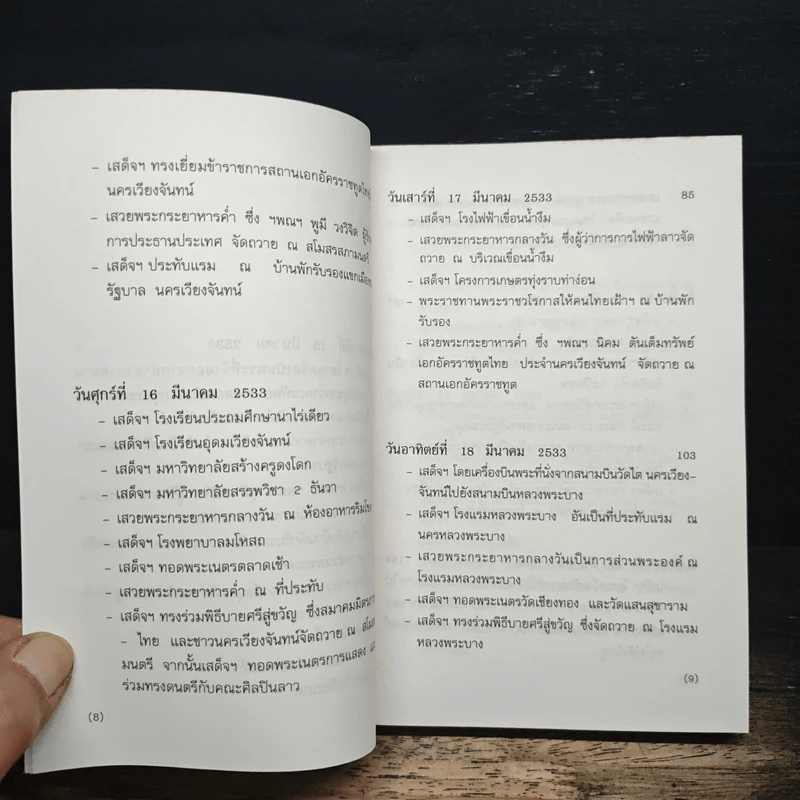 - เสด็จฯ ทรงเยี่ยมข้าราชการสถานเอกอัครราชทูตไทย
นครเวียงจันทน์
- เสวยพระกระยาหารค่ำ ซึ่ง ฯพณฯ พูมี วงวิจิด
การประธานประเทศ จัดถวาย ณ สโมสรสภามนตรี
- เสด็จฯ ประทับแรม ณ บ้านพักรับรองแขกเมือง
รัฐบาล นครเวียงจันทน์
วันศุกร์ที่ 16 มีนาคม 2533
- เสด็จฯ โรงเรียนประถมศึกษานาไร่เดียว
- เสด็จฯ โรงเรียนอุดมเวียงจันทน์
- เสด็จฯ มหาวิทยาลัยสร้างครูดงโดก
- เสด็จฯ มหาวิทยาลัยสรรพวิชา 2 ธันวา
- เสวยพระกระยาหารกลางวัน ณ ห้องอาหารริมโขง
- เสด็จฯ โรงพยาบาลมโหสถ
- เสด็จฯ ทอดพระเนตรตลาดเช้า
- เสวยพระกระยาหารค่ำ ณ ที่ประทับ
- เสด็จฯ ทรงร่วมพิธีบายศรีสู่ขวัญ ซึ่งสมาคมมิตรภาพ
- ไทย และชาวนครเวียงจันทน์จัดถวาย ณ
มนตรี จากนั้นเสด็จฯ ทอดพระเนตรการแสดง
ร่วมทรงดนตรีกับคณะศิลปินลาว
(8)
วันเสาร์ที่ 17 มีนาคม 2533 85
- เสด็จฯ โรงไฟฟ้าเขื่อนน้ำงึม
- เสวยพระกระยาหารกลางวัน ซึ่งผู้ว่าการการไฟฟ้าลาวจัด
ถวาย ณ บริเวณเขื่อนน้ำงึม
- เสด็จฯ โครงการเกษตรทุ่งราบท่าง่อน
- พระราชทานพระราชวโรกาสให้คนไทยเฝ้าฯ ณ บ้านพัก
รับรอง
- เสวยพระกระยาหารค่ำ ซึ่ง ฯพณฯ นิคม ตันเต็มทรัพย์
เอกอัครราชทูตไทย ประจำนครเวียงจันทน์ จัดถวาย ณ
สถานเอกอัครราชทูต
วันอาทิตย์ที่ 18 มีนาคม 2533 103
- เสด็จฯ โดยเครื่องบินพระที่นั่งจากสนามบินวัดไต นครเวียง-
จันทน์ไปยังสนามบินหลวงพระบาง
- เสด็จฯ โรงแรมหลวงพระบาง อันเป็นที่ประทับแรม ณ
นครหลวงพระบาง
- เสวยพระกระยาหารกลางวันเป็นการส่วนพระองค์ ณ
โรงแรมหลวงพระบาง
- เสด็จฯ ทอดพระเนตรวัดเชียงทอง และวัดแสนสุขาราม
- เสด็จฯ ทรงร่วมพิธีบายศรีสู่ขวัญ ซึ่งจัดถวาย ณ โรงแรม
หลวงพระบาง
(9)